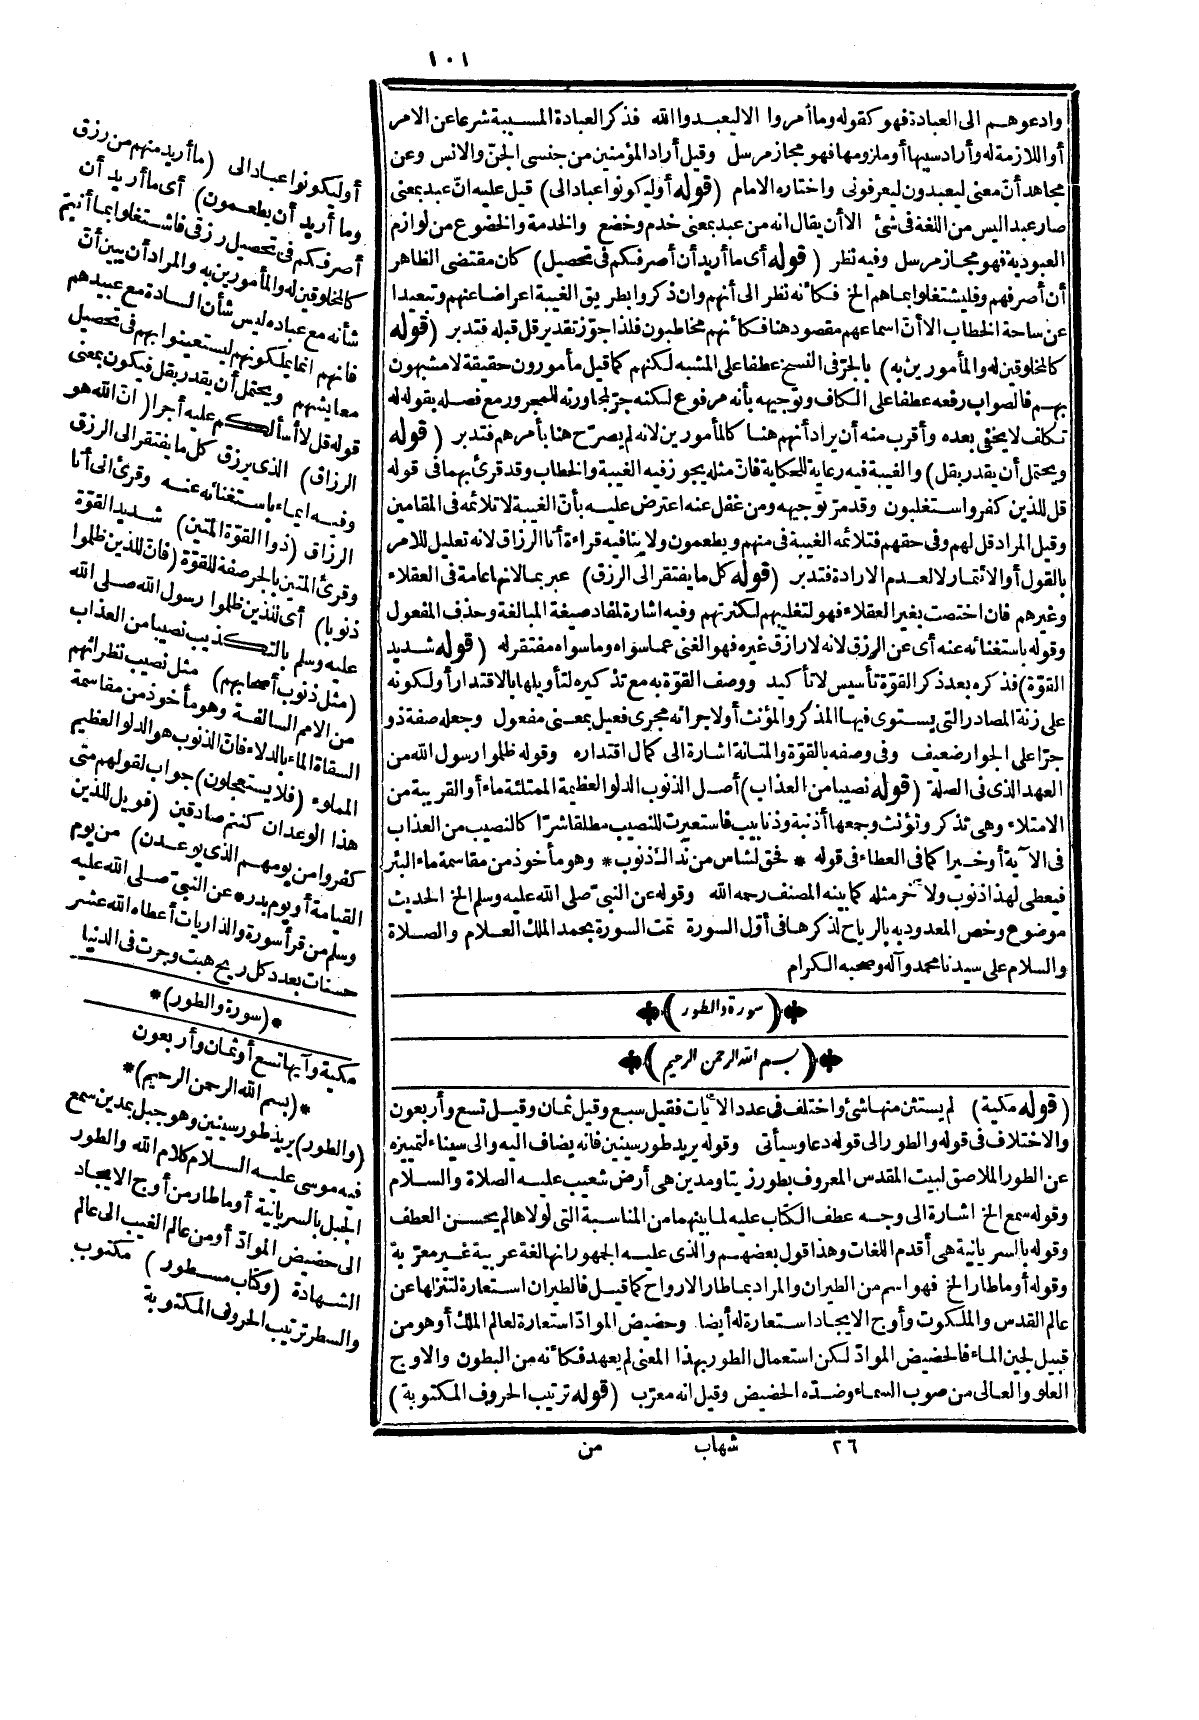 ١٠١
وادعوهم الى العبادة فهو كقوله وما أمروا الا ليعبدوا الله فذكر العبادة المسببة شرعا عن الامر
أو اللازمة له وأراد سببها أو ملزومها فهو مجاز مرسل وقيل أراد المؤمنين من جنسى الجن والانس وعن
مجاهد أنّ معنى ليعبدون ليعرفونى واختاره الامام (قوله أوليكونوا عبادا لى) قيل عليه انّ عبد بمعنى
صار عبدا ليس من اللغة فى شئ الا أن يقال انه من عبد بمعنى خدم وخضع والخدمة والخضوع من لوازم
العبودية فهو مجاز مرسل وفيه نظر (قوله أى ما أريد أن أصرفكم فى تحصيل) كان مقتضى الظاهر
أن أصرفهم وفليشتغلوا بما هم الخ فكأنه نظر الى أنهم وان ذكروا بطريق الغيبة اعراضا عنهم وتبعيدا
عن ساحة الخطاب الا أنّ اسماعهم مقصود هنا فكأنهم مخاطبون فلذا جوّز تقدير قل قبله فتدبر (قوله
كالمخلوقين له والمأمورين به) بالجرّ فى النسخ عطفا على المشبه لكنهم كما قيل مأمورون حقيقة لا مشبهون
بهم فالصواب رفعه عطفا على الكاف وتوجيهه بأنه مرفوع لكنه جرّ لمجاورته للمجرور مع فصله بقوله له
تكلف لا يخفى بعده وأقرب منه أن يراد أنهم هنا كالمأمورين لانه لم يصرّح هنا بأمرهم فتدبر (قوله
ويحتمل أن يقدر بقل) والغيبة فيه رعاية للحكاية فانّ مثله يجوز فيه الغيبة والخطاب وقد قرئ بهما فى قوله
قل للذين كفروا ستغلبون وقد مرّ توجيهه ومن غفل عنه اعترض عليه بأنّ الغيبة لا تلائمه فى المقامين
وقيل المراد قل لهم وفى حقهم فتلائمه الغيبة فى منهم ويطعمون ولا ينافيه قراءة أنا الرزاق لانه تعليل للامر
بالقول أو الائتمار لا لعدم الارادة فتدبر (قوله كل ما يفتقر الى الرزق) عبر بما لانها عامة فى العقلاء
وغيرهم فان اختصت بغير العقلاء فهو لتغليبهم لكثرتهم وفيه اشارة لمفاد صيغة المبالغة وحذف المفعول
وقوله باستغنائه عنه أى عن الرزق لانه لا رازق غيره فهو الغنى عما سواه وما سواه مفتقر له (قوله شديد
القوّة) فذكره بعد ذكر القوّة تأسيس لا تأكيد ووصف القوّة به مع تذكيره لتأويلها بالاقتدار أو لكونه
على زنة المصادر التى يستوى فيها المذكر والمؤنث أو لاجرائه مجرى فعيل بمعنى مفعول وجعله صفة ذو
جرّا على الجوار ضعيف وفى وصفه بالقوّة والمتانة اشارة الى كمال اقتداره وقوله ظلموا رسول الله من
العهد الذى فى الصلة (قوله نصيبا من العذاب) أصل الذنوب الدلو العظيمة الممتلئة ماء أو القريبة من
الامتلاء وهى تذكر وتؤنث وجمعها أذنبة وذنائب فاستعيرت للنصيب مطلقا شرّا كالنصيب من العذاب
فى الآية أو خيرا كما فى العطاء فى قوله * فحق لشاس من نداك ذنوب * وهو مأخوذ من مقاسمة ماء البئر
فيعطى لهذا ذنوب ولآخر مثله كما بينه المصنف رحمه الله وقوله عن النبىّ صلى الله عليه وسلم الخ الحديث
موضوع وخص المعدود به بالرياح لذكرها فى أوّل السورة تمت السورة بحمد الملك العلام والصلاة
والسلام على سيدنا محمد وآله وصحبه الكرام
(سورة والطور)
(بسم الله الرحمن الرحيم)
(قوله مكية) لم يستثن منها شئ واختلف فى عدد الآيات فقيل سبع وقيل ثمان وقيل تسع وأربعون
والاختلاف فى قوله والطور الى قوله دعا وسيأتى وقوله يريد طور سينين فانه يضاف اليه والى سيناء لتمييزه
عن الطور الملاصق لبيت المقدس المعروف بطور زيتا ومدين هى أرض شعيب عليه الصلاة والسلام
وقوله سمع الخ اشارة الى وجه عطف الكتاب عليه لما بينهما من المناسبة التى لولاها لم يحسن العطف
وقوله بالسريانية هى أقدم اللغات وهذا قول بعضهم والذى عليه الجمهور انها لغة عربية غير معرّبة
وقوله أو ما طار الخ فهو اسم من الطيران والمراد بما طار الارواح كما قيل فالطيران استعارة لتنزلها عن
عالم القدس والملكوت وأوج الايجاد استعارة له أيضا وحضيض الموادّ استعارة لعالم الملك أو هو من
قبيل لجين الماء فالحضيض الموادّ لكن استعمال الطور بهذا المعنى لم يعهد فكأنه من البطون والاوج
العلو والعالى من صوب السماء وضدّه الحضيض وقيل انه معرّب (قوله ترتيب الحروف المكتوبة)
٢٦ شهاب من
أو ليكونوا عبادا لى (ما أريد منهم من رزق
وما أريد أن يطعمون) أى ما أريد أن
أصرفكم فى تحصيل رزقى فاشتغلوا بما أنتم
كالمخلوقين له والمأمورين به والمراد أن يبين أنّ
شأنه مع عباده ليس شأن السادة مع عبيدهم
فانهم انما يملكونهم ليستعينوا بهم فى تحصيل
معايشهم ويحتمل أن يقدر بقل فيكون بمعنى
قوله قل لا أسألكم عليه أجرا (ان الله هو
الرزاق) الذى يرزق كل ما يفتقر الى الرزق
وفيه ايماء باستغنائه عنه وقرئ انى أنا
الرزاق (ذو القوّة المتين) شديد القوّة
وقرئ المتين بالجر صفة للقوّة (فانّ للذين ظلموا
ذنوبا) أى للذين ظلموا رسول الله صلى الله
عليه وسلم بالتكذيب نصيبا من العذاب
(مثل ذنوب أصحابهم) مثل نصيب نظرائهم
من الامم السالفة وهو مأخوذ من مقاسمة
السقاة الماء بالدلاء فانّ الذنوب هو الدلو العظيم
المملوء (فلا يستعجلون) جواب لقولهم متى
هذا الوعد ان كنتم صادقين (فويل للذين
كفروا من يومهم الذى يوعدون) من يوم
القيامة أو يوم بدر * عن النبىّ صلى الله عليه
وسلم من قرأ سورة والذاريات أعطاه الله عشر
حسنات بعدد كل ريح هبت وجرت فى الدنيا
*(سورة والطور)*
مكية وآيها تسع أو ثمان وأربعون
*(بسم الله الرحمن الرحيم)*
(والطور) يريد طور سينين وهو جبل بمدين سمع
فيه موسى عليه السلام كلام الله والطور
الجبل بالسريانية أو ما طار من أوج الايجاد
الى حضيض الموادّ أو من عالم الغيب الى عالم
الشهادة (وكتاب مسطور) مكتوب
والسطر ترتيب الحروف المكتوبة